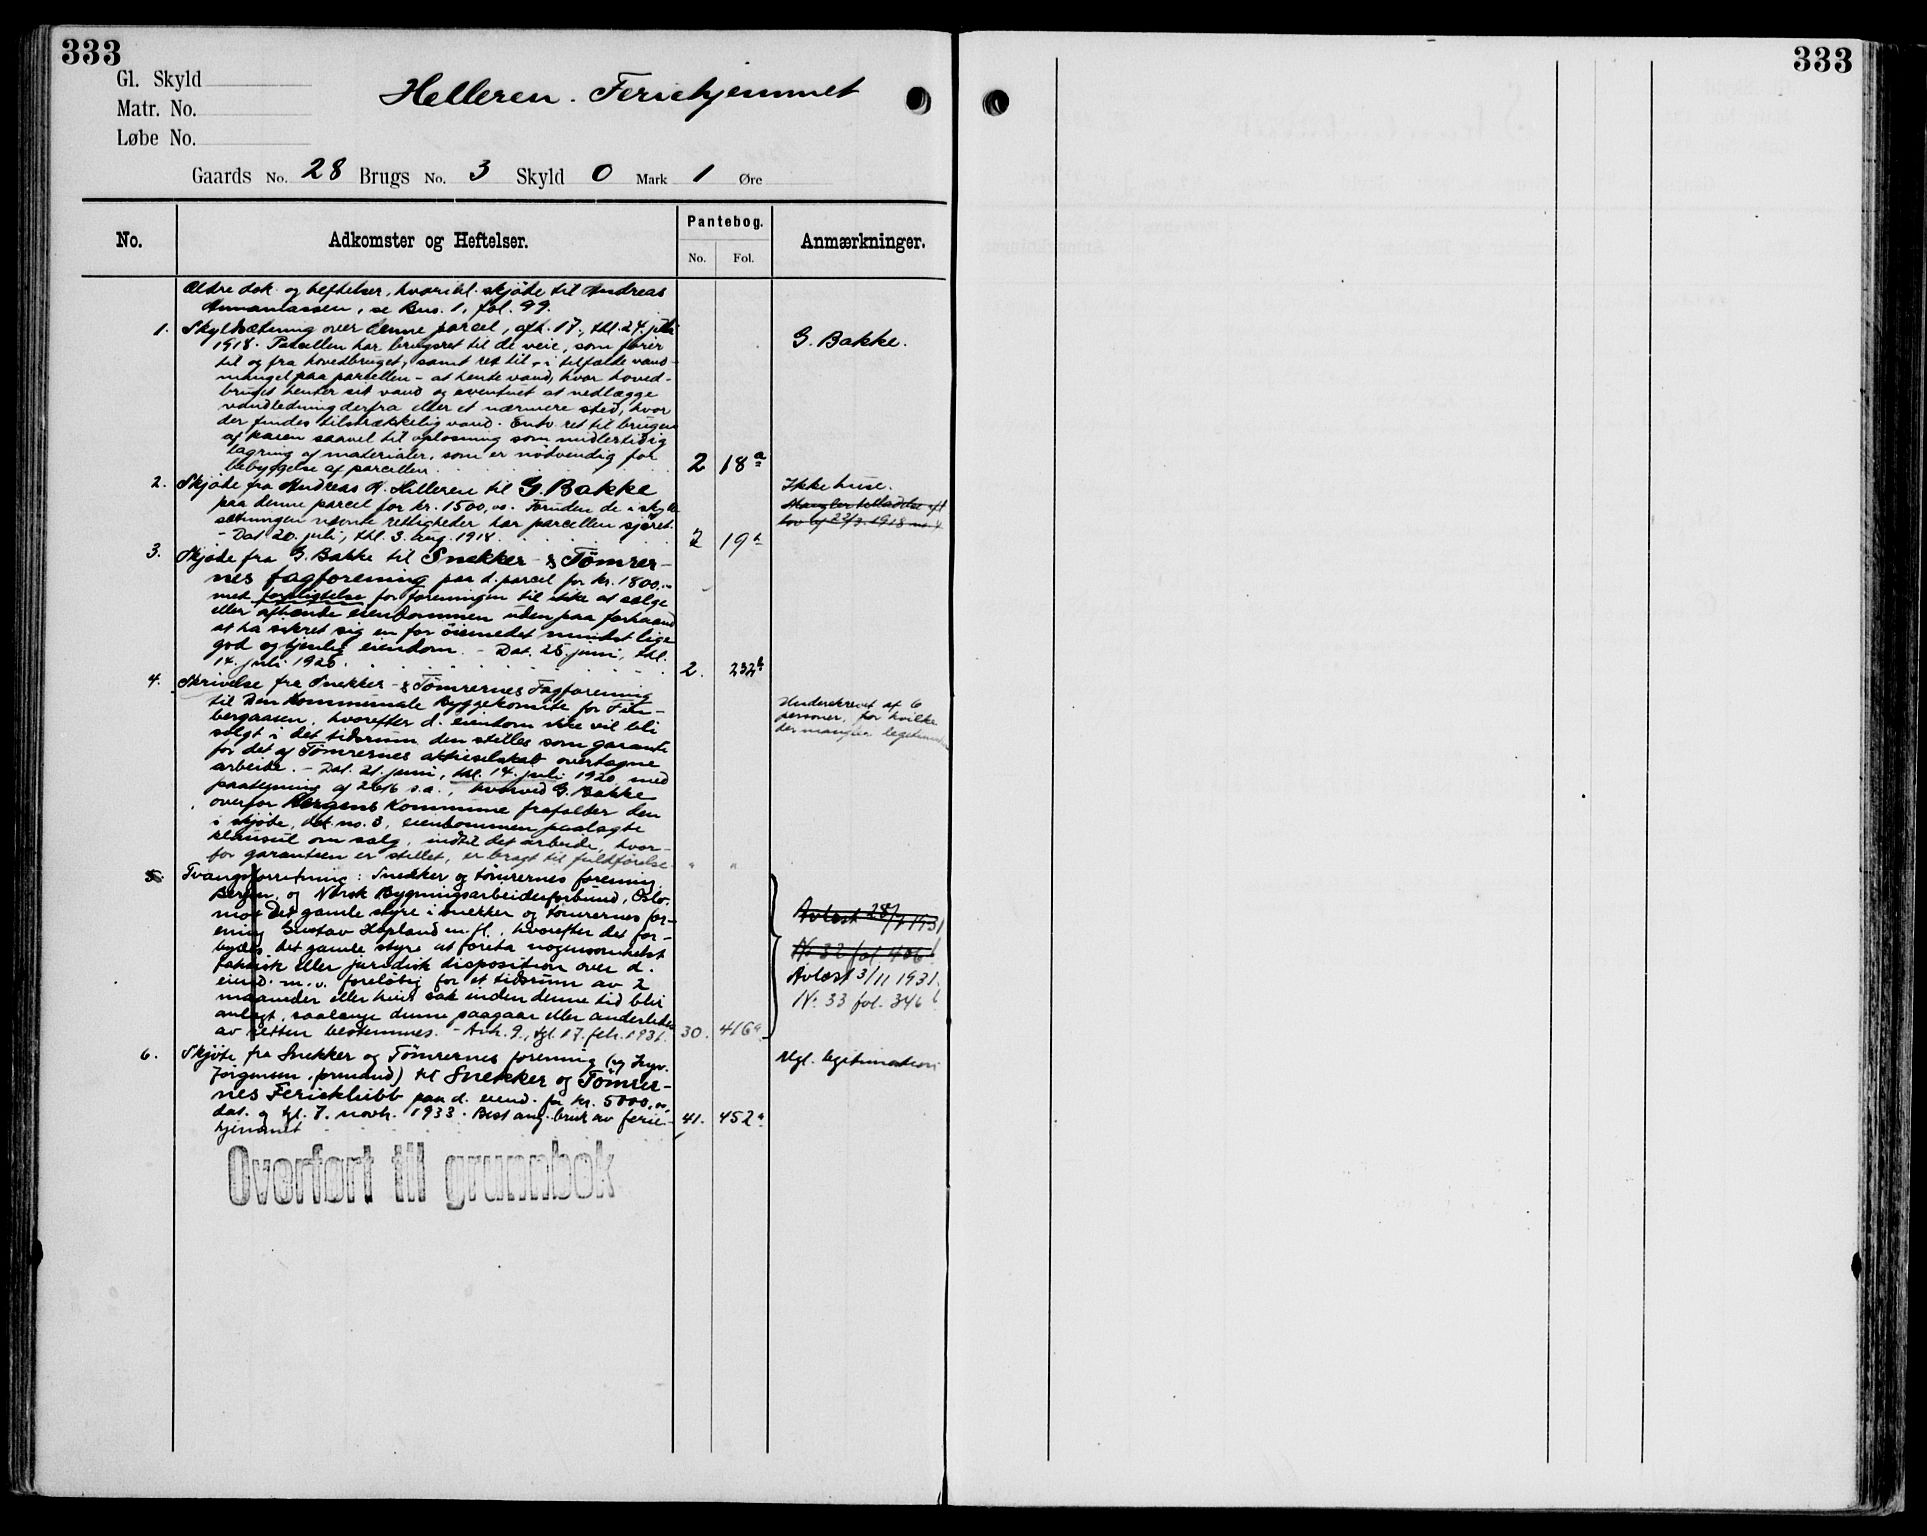 333
333
Gl. Skyld
Matr. No.
Løbe No.
Helleren. Feriehjemmet
Gaards No. 28 Brugs No. 3 Skyld 0 Mark 1 Øre
No. Adkomster og Heftelser. Pantebog. Anmærkninger.
No. Fol.
Ældre dok. og heftelser, hvoribl. skjøte til Andreas
Annaniassen, se Bno. 1, fol. 99.
1. Skyldsætning over denne parcel, afh. 17., thl. 24. juli
1918. Parcellen har brugsret til de veie, som fører G. Bakke.
til og fra hovedbruget, samt ret til - i tilfælde vand-
mangel paa parcellen - at hente vand, hvor hoved-
bruget henter sit vand og eventuelt at nedlægge
vandledning derfra eller et nærmere sted, hvor
der findes tilstrækkelig vand. Entv. ret til brugen
af kaien saavel til oplosning som midlertidig
lagring af materialer, som er nødvendig for
bebyggelse af parcellen. 2 18 a
2. Skjøte fra Andreas A. Helleren til G. Bakke Ikke huse.
paa denne parcel for kr. 1500,00. Foruden de i skyld- Mangler tilladelse eft
sætningen nævnte rettigheder har parcellen sjøret. lov af 22/3.1918 no 4
- Dat 20. juli, thl. 3. aug. 1918. 2 19 b
3. Skjøte fra G. Bakke til Snekker- & Tömrer-
nes fagforening paa d. parcel for kr. 1800,-
med forpligtelse for foreningen til ikke at sælge
eller afhænde eiendommen uden paa forhaand
at ha sikret sig en for øiemedet mindst lige
god og tjenlig eiendom. - Dat. 25. juni, thl.
14. juli 1920. 2. 232 b
4. Skrivelse fra Snekker- & Tömrernes Fagforening
til Den Kommunale Byggekomite for Fin- Underskrevet af 6
bergaasen, hvorefter d. eiendom ikke vil bli personer, for hvilke
solgt i det tidsrum den stilles som garanti der mangler legitimation
for det af Tömrernes aktieselskab overtagne
arbeide. - Dat. 21. juni, thl. 14. juli 1920 med
paategning af 26/6 s.a., hvorved G. Bakke
overfor Bergens Kommune frafalder den
i skjøte, dok. no. 3, eiendommen paalagte
klausul om salg, indtil det arbeide, hvor-
for garantien er stillet, er bragt til fuldførelse. " "
5. Tvangsforretning: Snekker og tømrernes forening,
Bergen, og Norsk Bygningsarbeiderforbund, Oslo,
mot Det gamle styre i snekker og tømrernes for- Avlæst 28/7 1931
ening Gustav Hopland m.fl., hvorefter det for-
bydes det gamle styre at foreta nogensomhelst No 32 fol. 406 b
faktisk eller juridisk disposition over d. Avlæst 3/11 1931.
eiend. m.v. foreløbig for et tidsrum av 2
maaneder eller hvis sak inden denne tid blir No. 33 fol. 346 b
anlagt, saalænge denne paagaar eller anderledes
av retten bestemmes. - Avh. 9., tgl. 17. febr. 1931. 30. 416 a
6. Skjøte fra Snekker og Tømrernes forening (v/ Ingv. Mgl. legitimation
Jörgensen, formand) til Snekker og Tömrer-
nes Ferieklubb paa d. eiend. for kr. 5000,00,
dat. og tgl. 7. novb. 1933. Best. ang. bruk av ferie- 41. 452 a
hjemmet
Overført til grunnbok